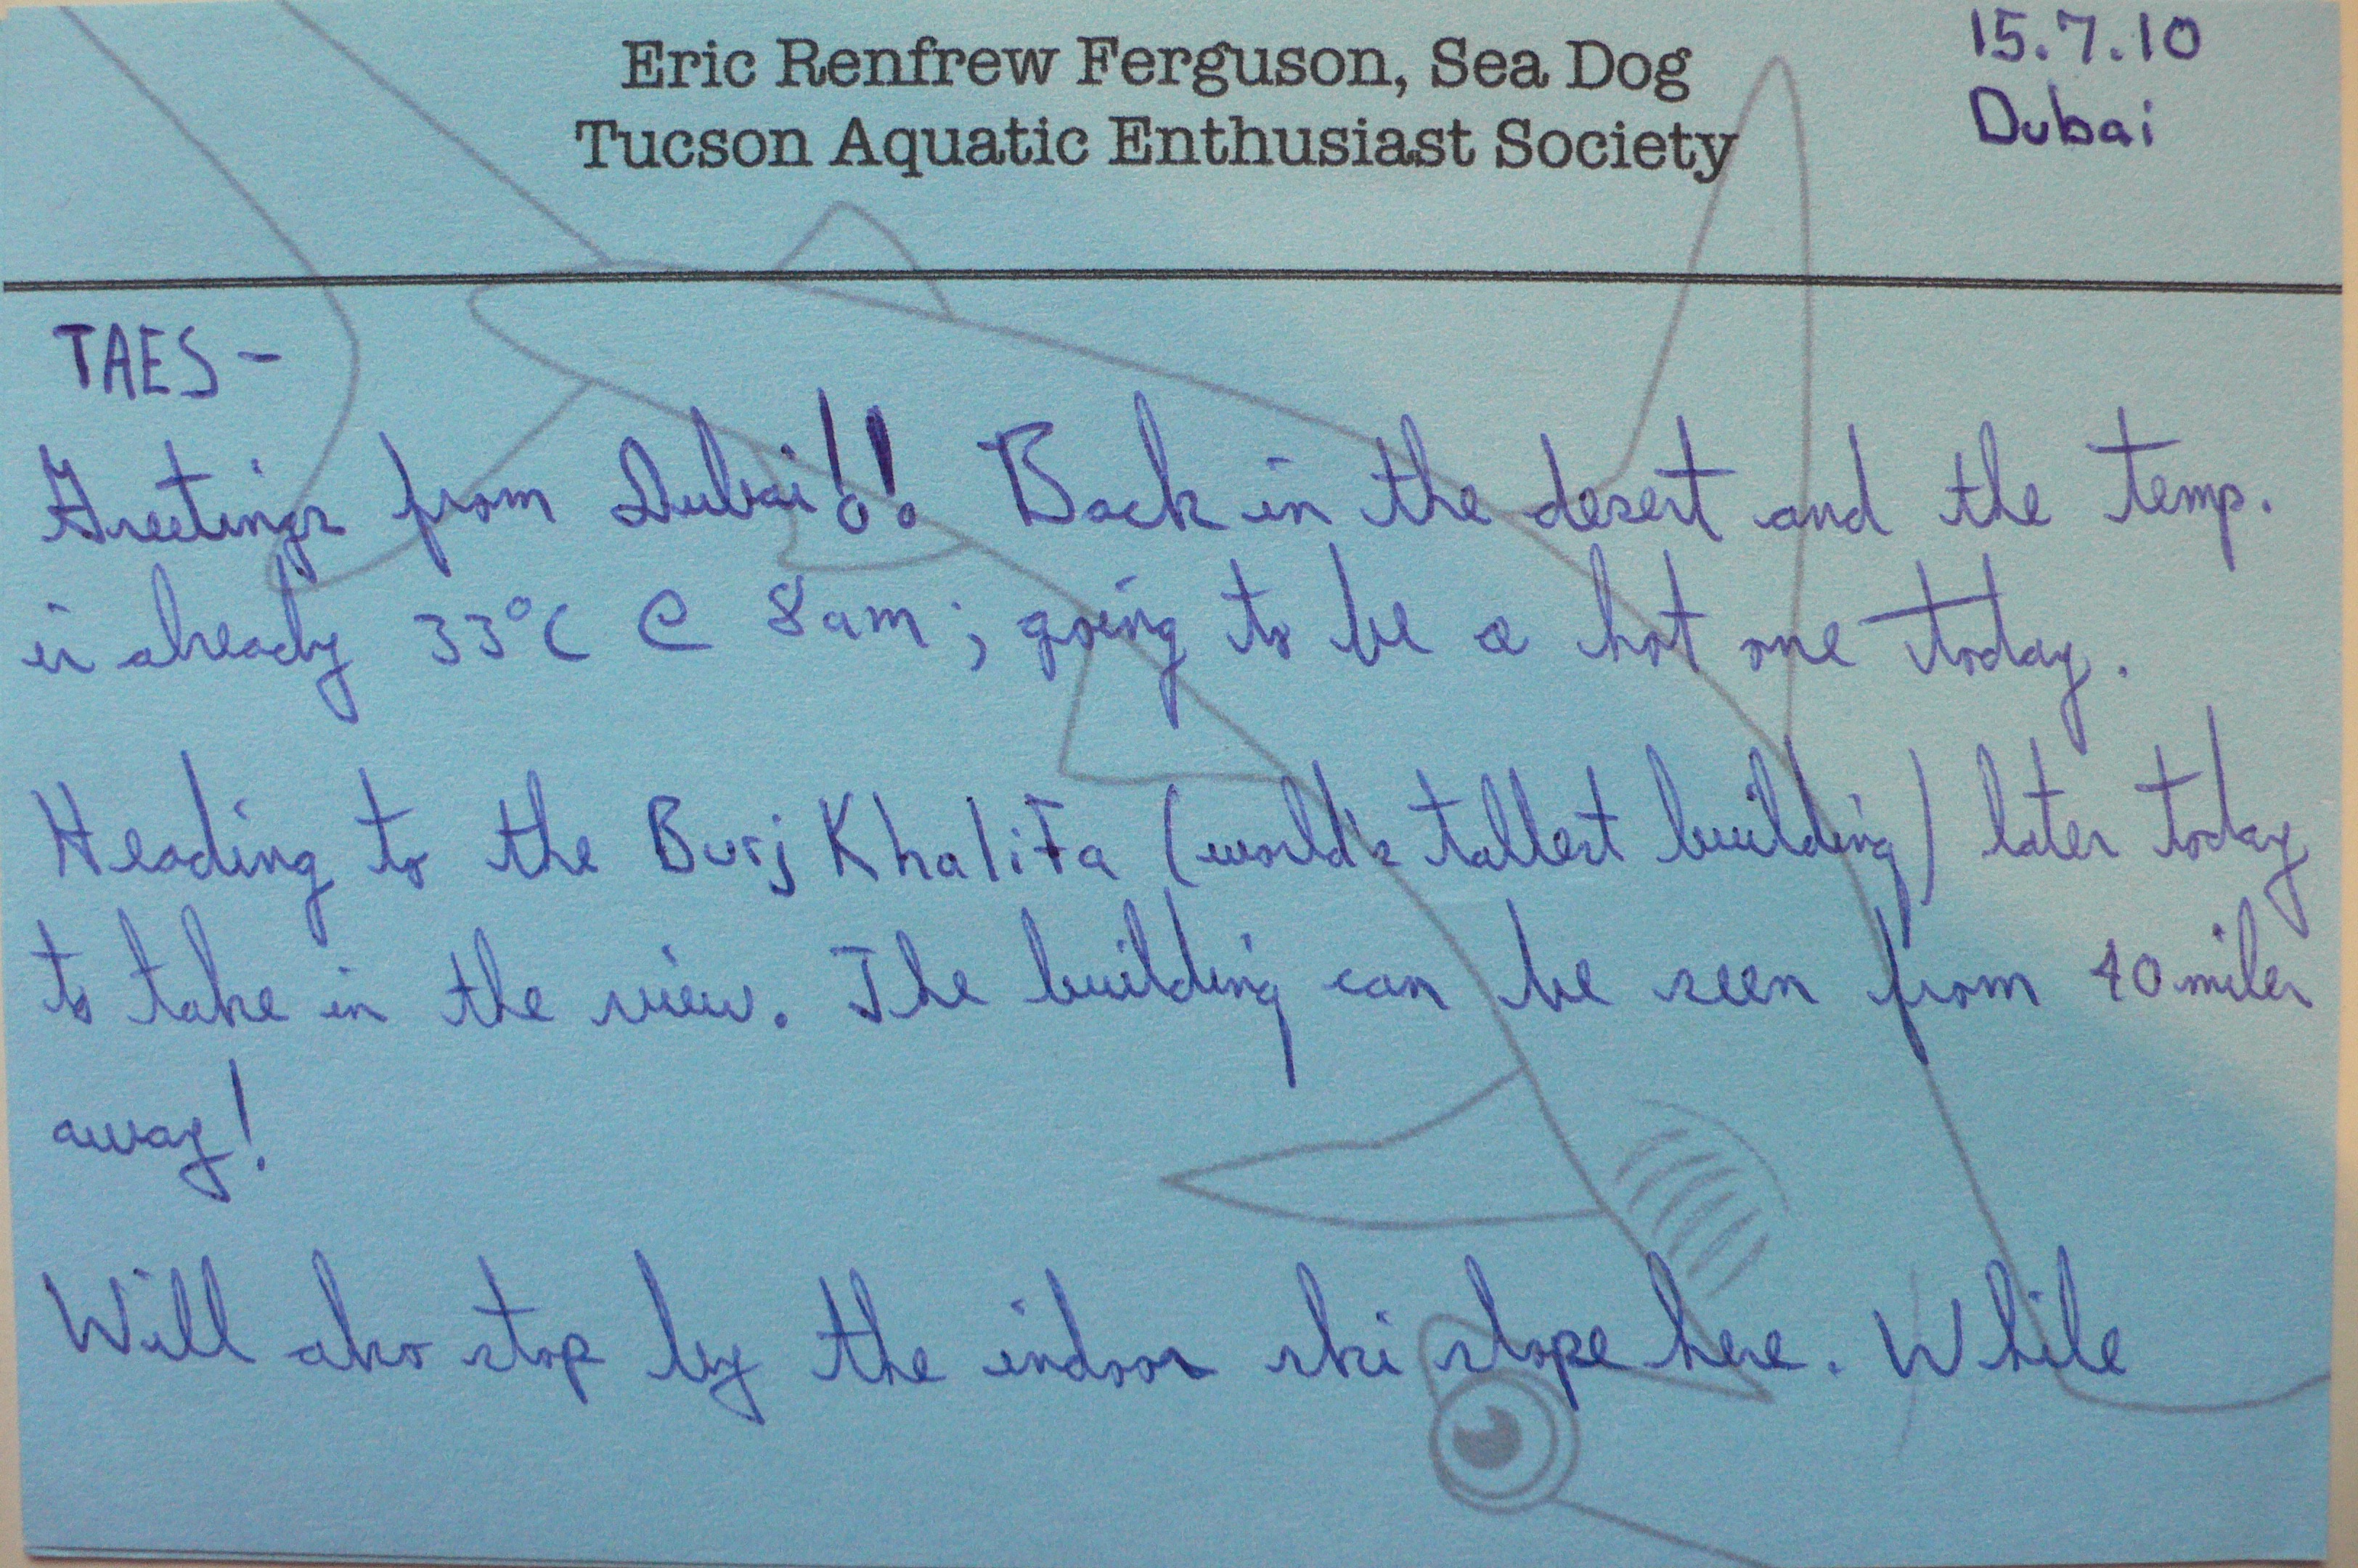 Eric Renfrew Ferguson, Sea Dog
Tucson Aquatic Enthusiast Society
15.7.10
Dubai
TAES -
Greetings from Dubai!! Back in the desert and the temp.
is already 33°C @ 8am; going to be a hot one today.
Heading to the Burj Khalifa (world's tallest building) later today
to take in the view. The building can be seen from 40 miles
away!
Will also stop by the indoor ski slope here. While